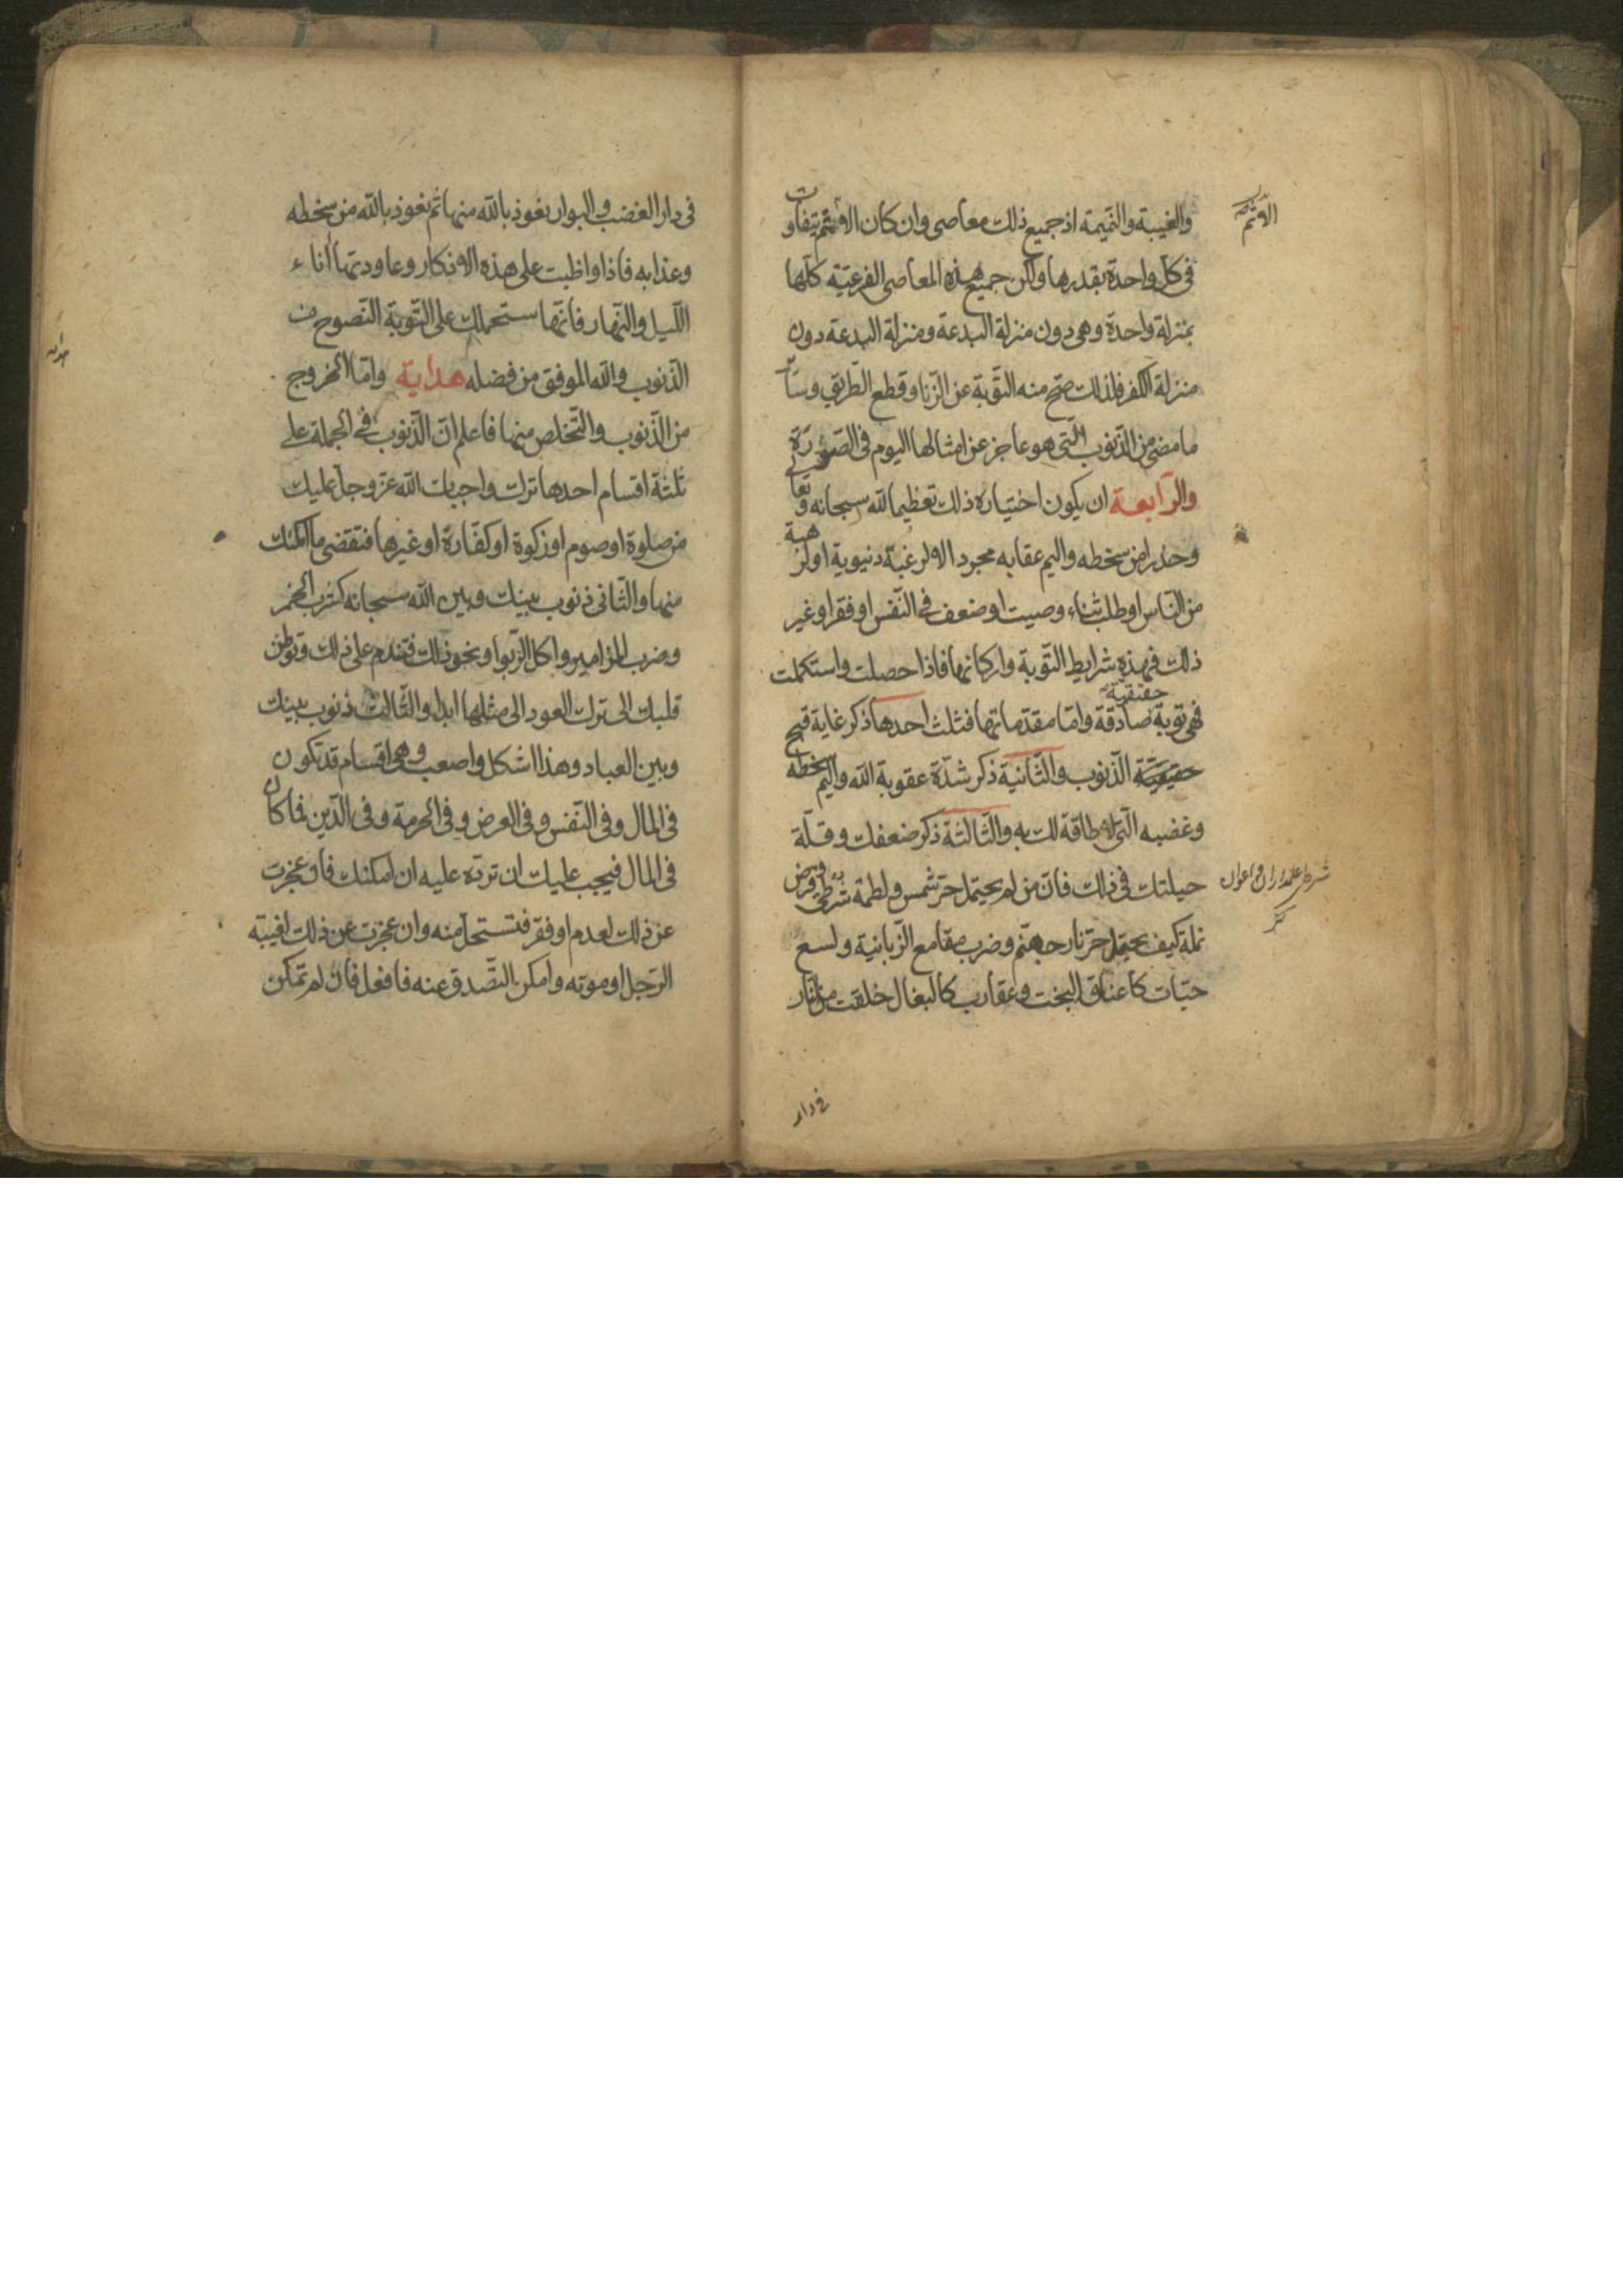 والغيبة والنّميمة اذ جميع ذلك معاصى وان كان الاثم يتفاوت
فى كلّ واحدة بقدرها ولكن جميع هذه المعاصى الفرعيّة كلّها
بمنزلة واحدة وهى دون منزلة البدعة ومنزلة البدعة دون
منزلة الكفر فلذلك صحّ منه التّوبة عن الزّنا وقطع الطّريق وسائر
ما مضى من الذّنوب الّتى هو عاجز عن امثالها اليوم فى الصّورة
والرّابعة ان يكون اختياره ذلك تعظيما لله سبحانه وتعالى
وحذرا من سخطه واليم عقابه مجرد الا لرغبة دنيوية او لرهبة
من النّاس او طلب ثناء وصيت او ضعف فى النّفس او فقر او غير
ذلك فهذه شرايط التّوبة واركانها فاذا حصلت واستكملت
حقيقية
فهى توبة صادقة وامّا مقدّماتها فثلث احدها ذكر غاية قبح
الذّنوب والثّانية ذكر شدّة عقوبة الله واليم سخطه
وغضبه الّتى لا طاقة لك به والثّالثة ذكر ضعفك وقلّة
حيلتك فى ذلك فانّ من لم يحتمل حرّ شمس ولطمة شرطى وقرص
نملة كيف يحتمل حرّ نار جهنّم وضرب مقامع الزّبانية ولسع
حيّات كاعناق البخت وعقارب كالبغال خلقت من النّار
الاثم
فى دار
فى دار الغضب والبوار نعوذ بالله منها ثم نعوذ بالله من سخطه
وعذابه فاذا واظبت على هذه الاذكار وعاودتها اناء
اللّيل والنّهار فانّها ستحملك على التّوبة النّصوح من
الذّنوب والله الموفق من فضله هداية وامّا الخروج
من الذّنوب والتّخلص منها فاعلم انّ الذّنوب فى الجملة على
ثلثة اقسام احدها ترك واجبات الله عزّ وجلّ عليك
من صلوة او صوم او زكوة او كفّارة او غيرها فتقضى ما امكنك
منها والثّانى ذنوب بينك وبين الله سبحانه كشرب الخمر
وضرب المزامير واكل الرّبوا ونحو ذلك فتندم على ذلك وتوطّن
قلبك الى ترك العود الى مثلها ابدا والثّالث ذنوب بينك
وبين العباد وهذا اشكل واصعب وهى اقسام قد تكون
فى المال وفى النّفس وفى العرض وفى الحرمة وفى الدّين فما كان
فى المال فيجب عليك ان تردّه عليه ان امكنك فان عجزت
عن ذلك لعدم او فقر فتستحلّ منه وان عجزت عن ذلك لغيبة
الرّجل او موته وامكن التّصدق عنه فافعل فان لم تمكن